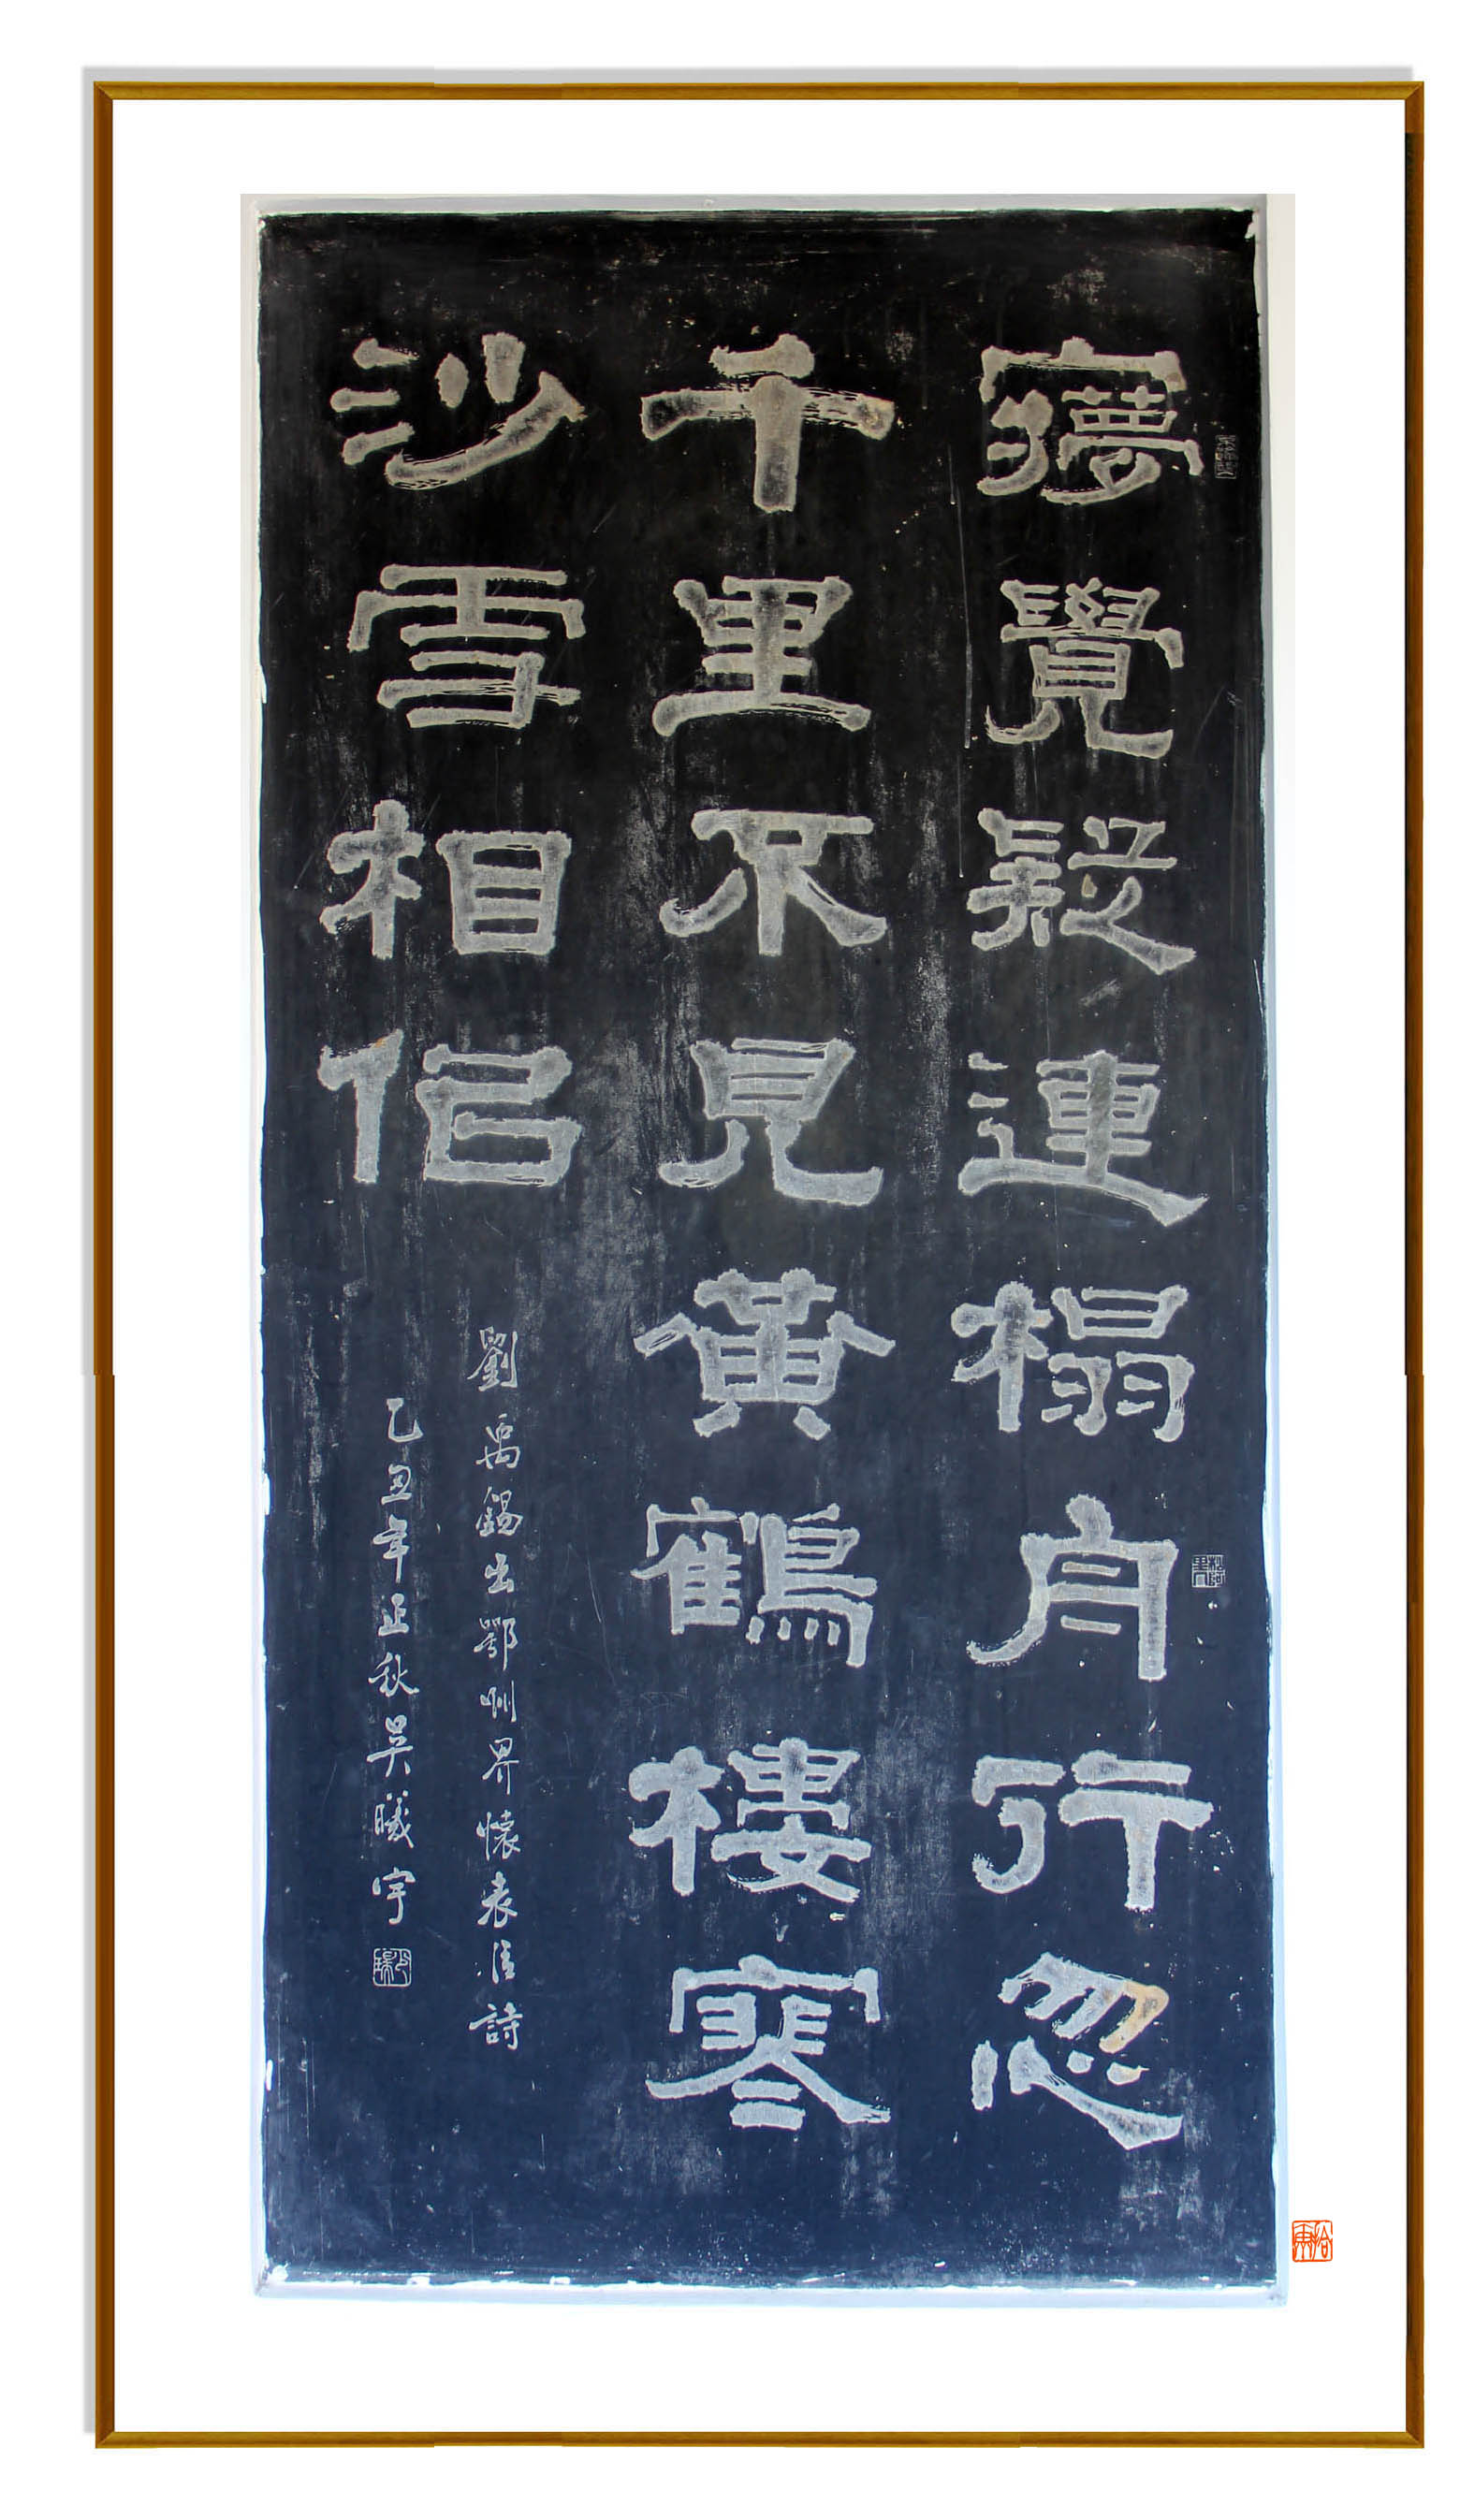 㝱覺疑連榻舟行忽
千里不見黃鶴樓寒
沙雪相侣
劉禹錫出鄂州界懷表臣詩
乙丑年正秋吳曦宇